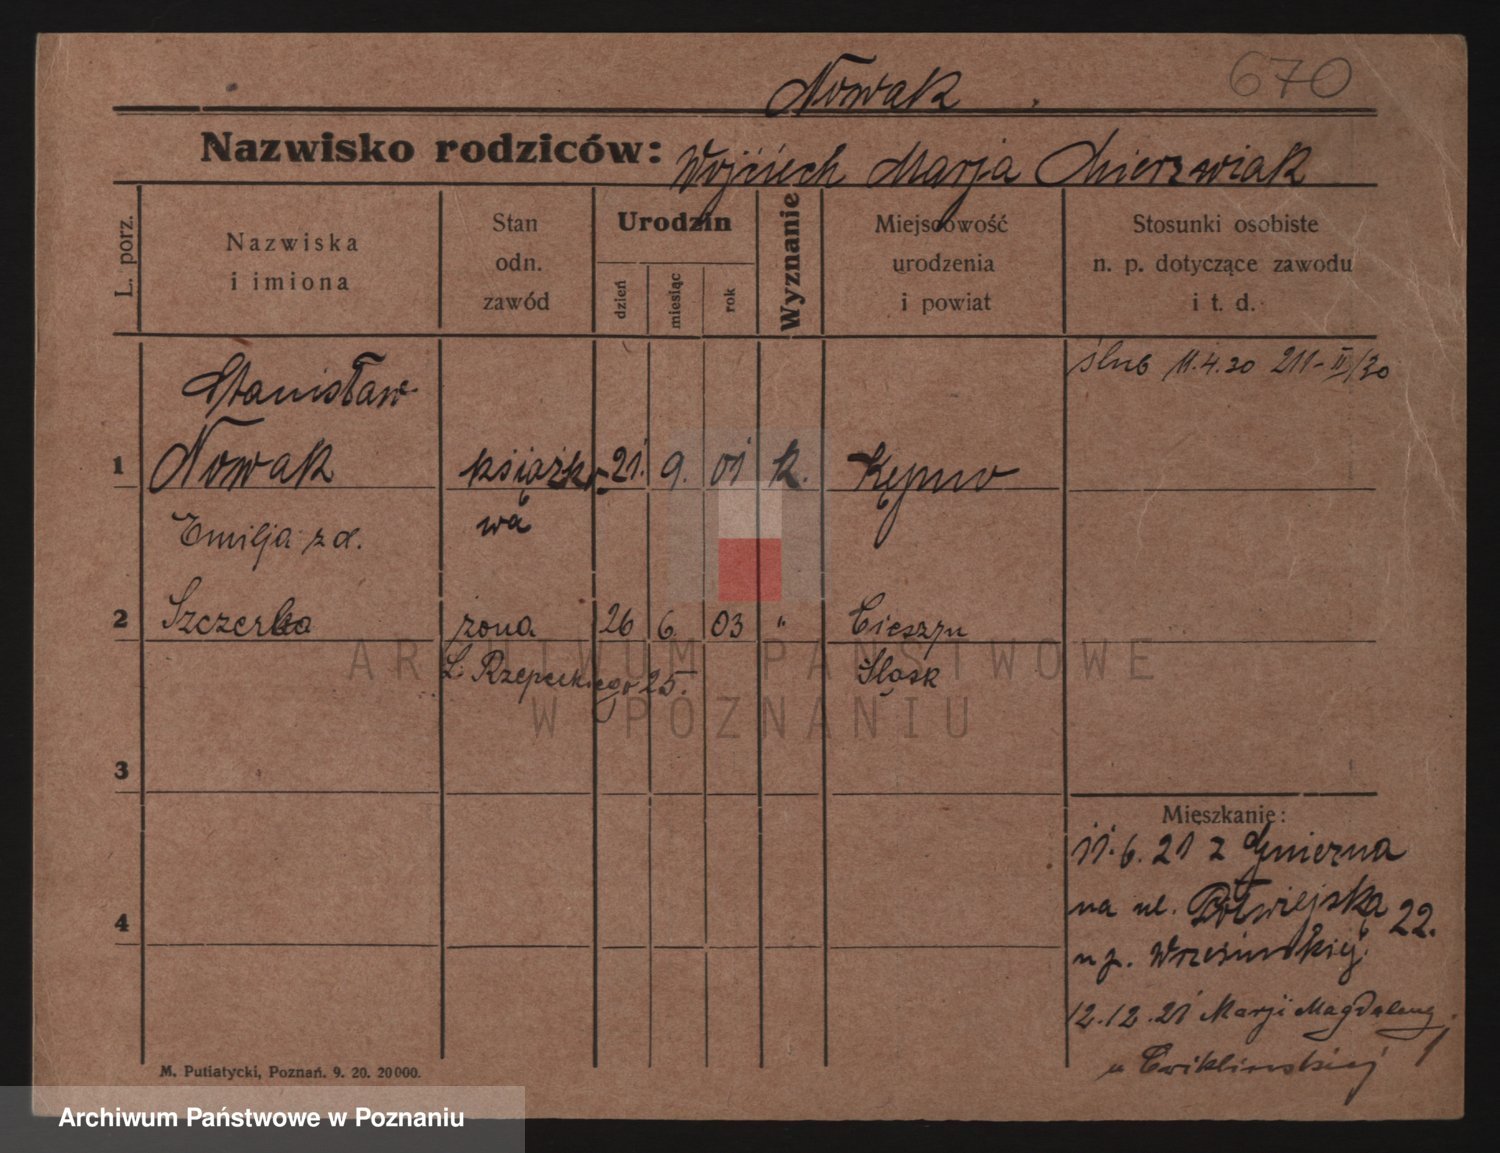 670
Nowak
Nazwisko rodziców: Wojciech Marja Mierzwiak
L. porz.
Nazwiska
i imiona
Stan
odn.
zawód
Urodzin
dzień
miesiąc
rok
Wyznanie
Miejscowość
urodzenia
i powiat
Stosunki osobiste
n. p. dotyczące zawodu
i t. d.
ślub 11.4.30 211-II/30
Stanisław
1 Nowak książko- 21. 9. 01 k. Kępno
wą
Emilja z d.
2 Szczerba żona 26 6 03 " Cieszyn
L. Rzepeckiego 25. Śląsk
3
Mieszkanie:
11.6.21 z Gniezna
na ul. Półwiejska 22.
4
u p. Wrzesińskiej.
12.12.21 Marji Magdaleny 1
u Ćwiklińskiej
M. Putiatycki, Poznań. 9. 20. 20000.
ARCHIWUM PAŃSTWOWE
W POZNANIU
Archiwum Państwowe w Poznaniu